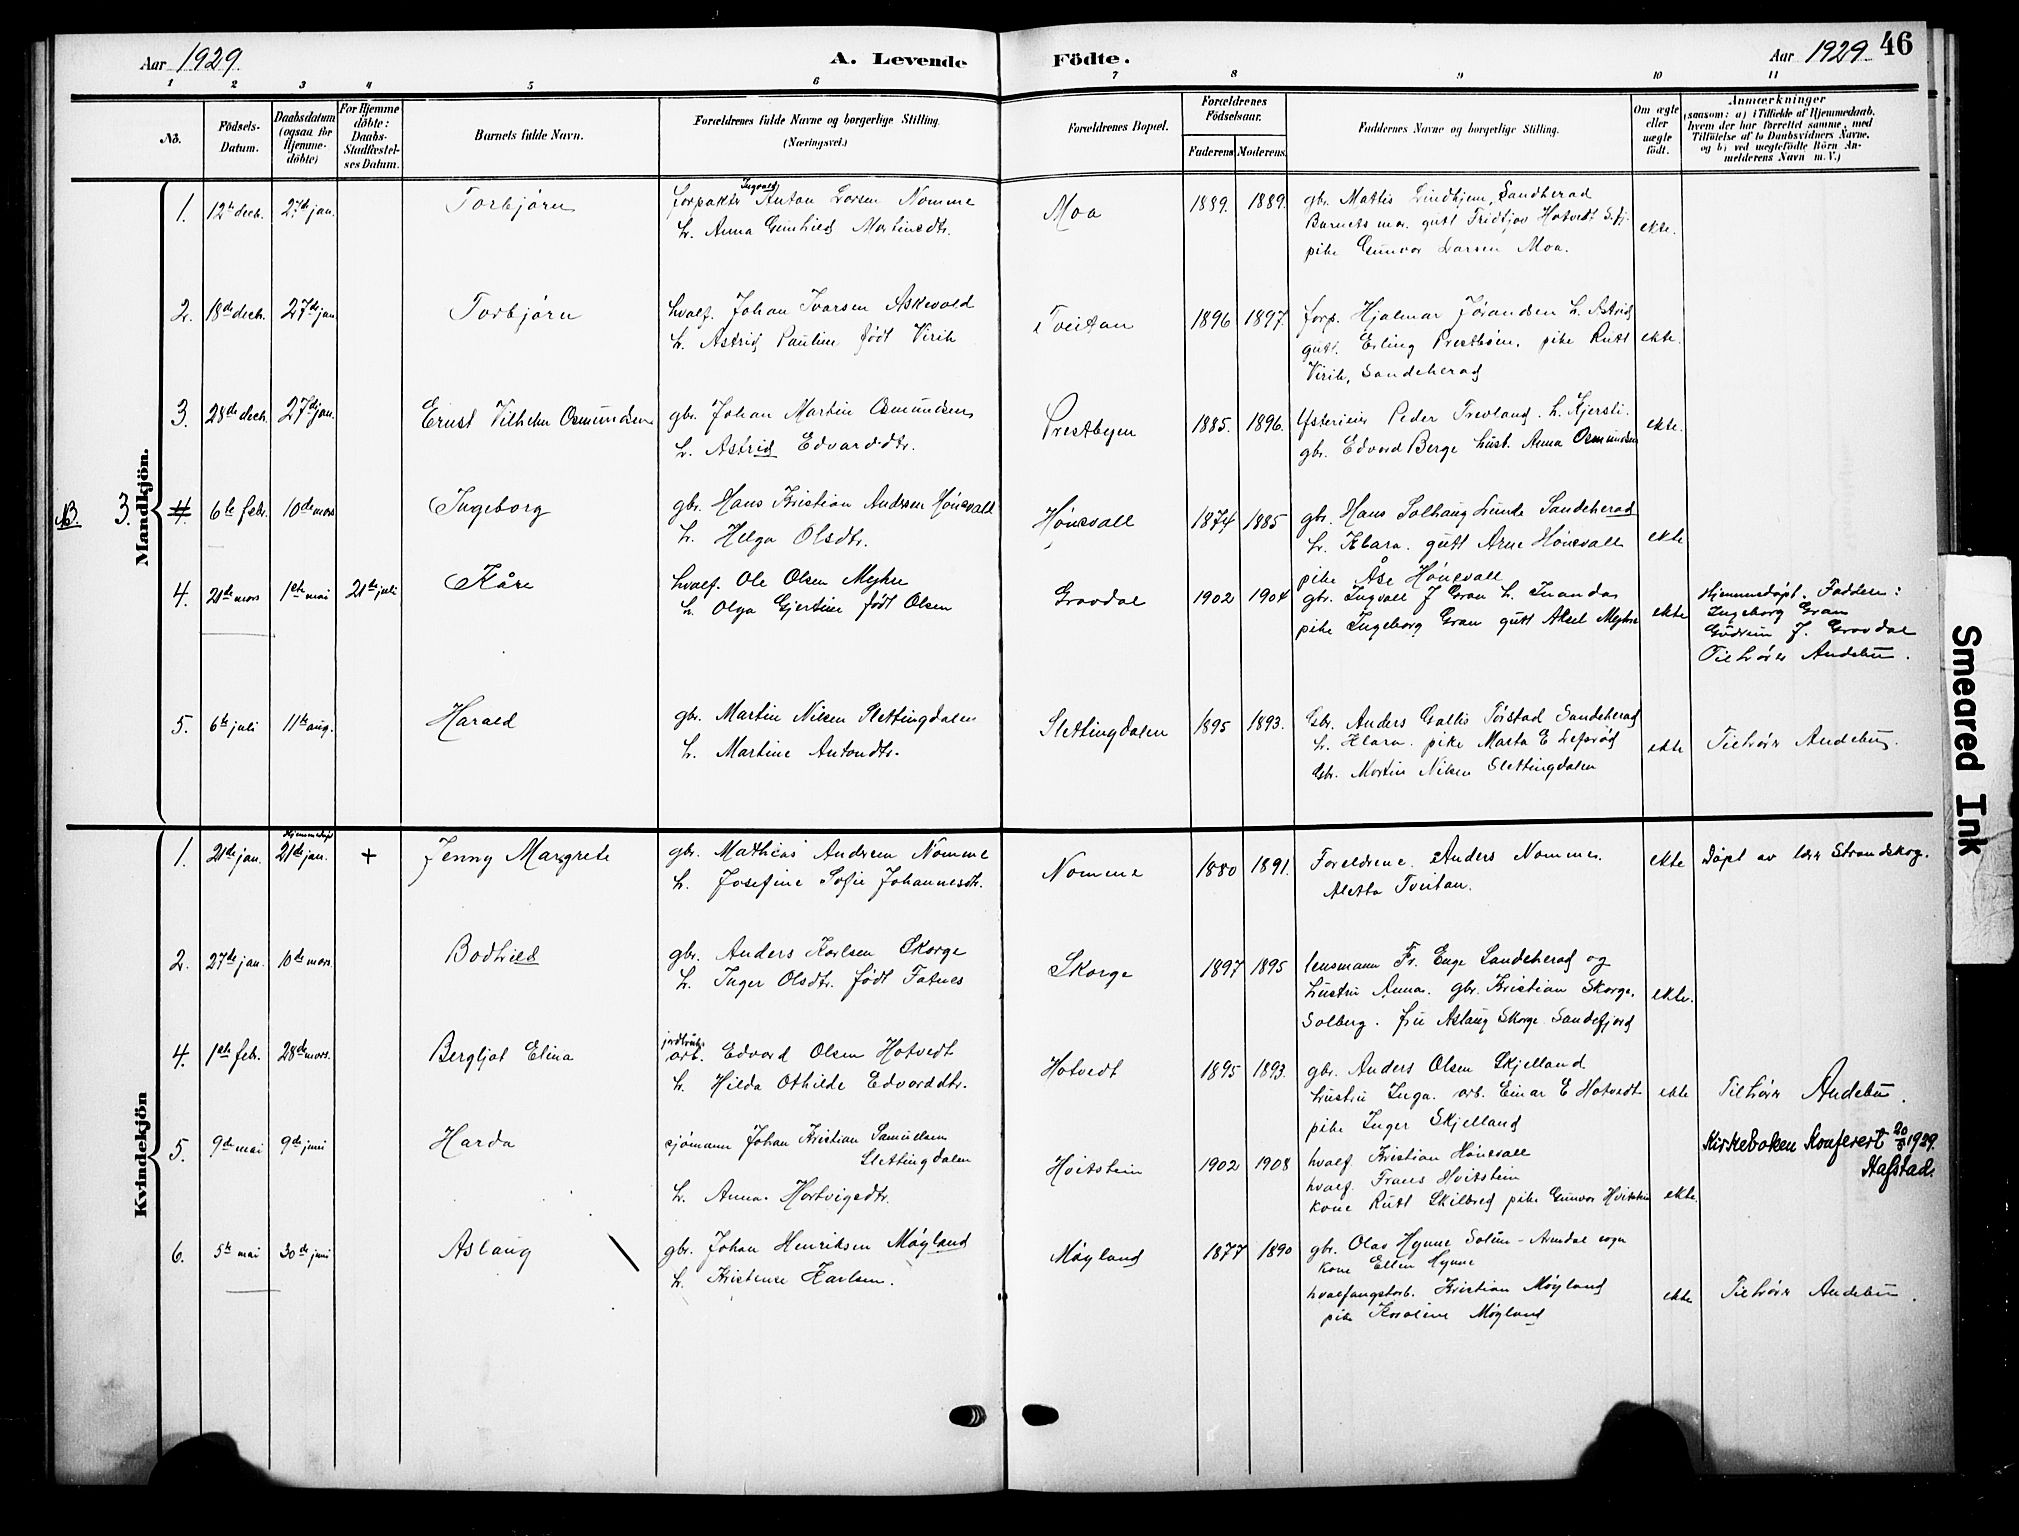 Aar 1929. A. Levende Födte. Aar 1929. 46
1 2 3 4 5 6 7 8 9 10 11
No.
Födsels-Datum.
Daabsdatum (ogsaa for Hjemme-döbte)
For Hjemme döbte: Daabs-Stadfæstel-ses Datum.
Barnets fulde Navn.
Forældrenes fulde Navne og borgerlige Stilling.
(Næringsvei.)
Forældrenes Bopæl.
Forældrenes Födselsaar.
Faderens Moderens.
Faddernes Navne og borgerlige Stilling.
Om ægte eller uægte födt.
Anmærkninger
(saasom: a) i Tilfælde af Hjemmedaab, hvem der har forrettet samme, med Tilföielse af to Daabsvidners Navne, og b) ved uægtefödte Börn An-melderens Navn m. V.)
Mandkjön.
1. 12te dech. 27de jan. Torbjørn
forpakter Ingvald Anton Larsen Nomme
h. Anna Gunhild Martinsdtr.
Moa 1889. 1889.
gbr. Mathis Lindhjem, Sandherad
Barnets mor. gutt Fridtjov Hotvedt S.fj.
pike Gunvor Larsen Moa.
ekte.
2. 18de dech. 27de jan. Torbjørn
hvalf. Johan Ivarsen Askevold
h. Astrid Pauline født Virik
Tveitan 1896 1897.
forp. Hjalmar Jørandsen h. Astrid
gutt. Erling Prestbøen. pike Rutt
Virik, Sandeherad
ekte.
3. 28de dech. 27de jan. Ernst Vilhelm Osmundsen
gbr. Johan Martin Osmundsen
h. Astrid Edvarddtr.
Prestbyen 1885. 1896.
Peder Trevland. h. Kjersti.
gbr. Edvard Berge hust. Anna Osmundsen
ekte.
NB. 3. 4. 6te febr. 10de mars Ingeborg
gbr. Hans Kristian Andersen Hønsvall
h. Helga Olsdtr.
Hønsvall 1874 1885
gbr. Hans Solhaug Lunde Sandeherad
h. Klara. gutt Arne Hønsvall
pike Åse Hønsvall
ekte
4. 21de mars 1ste mai 21de juli Kåre
hvalf. Ole Olsen Myhre
h. Olga Gjertine født Olsen
Gravdal 1902 1904
gbr. Ingvall J Gran h. Inanda
pike Ingeborg Gran gutt Aksel Myhre
ekte
Hjemmedøpt. Faddere:
Ingeborg Gran
Gudrun J. Gravdal
Tilhører Andebu.
5. 6te juli 11te aug. Harald
gbr. Martin Nilsen Slettingdalen
h. Martine Antondtr.
Slettingdalen 1895 1893.
Gbr. Anders Gallis Torstad Sandeherad
h. Klara. pike Marta E Lefsrød
Gbr. Martin Nilsen Slettingdalen
ekte Tilhører Andebu.
Kvindekjön
1. 21de jan. Hjemmedøpt 21de jan. + Jenny Margrete
gbr. Mathias Andersen Nomme
h. Josefine Sofie Johannesdtr.
Nomme 1880 1891.
Foreldrene. Anders Nomme.
Aletta Tveitan.
ekte Døpt av lærer Strandskog.
2. 27de jan. 10de mars. Bodhild
gbr. Anders Karlsen Skorge
h. Inger Olsdtr. født Tatnes
Skorge 1897 1895
lensmann Fr. Enge Sandeherad og
hustru Anna. gbr. Kristian Skorge.
Solberg. fru Aslaug Skorge Sandefjord
ekte.
4. 1ste febr. 28de mars. Bergljot Elina
jordbruks-
arb. Edvard Olsen Hotvedt
h. Hilda Othilde Edvarddtr.
Hotvedt 1895 1893.
gbr. Anders Olsen Skjelland
hustru Inga. arb. Einar E Hotvedt
pike Inger Skjelland
ekte Tilhører Andebu.
5. 9de mai 9de juni Harda
sjømann Johan Kristian Samuelsen
Slettingdalen
h. Anna Hartvigsdtr.
Hvitstein 1902 1908
hvalf. Kristian Hønsvall
hvalf. Frans Hvitstein
kone Rutt Skilbred pike Gunvor Hvitstein
ekte.
Kirkeboken Konferert 20/8 1929.
Hafstad.
6. 5te mai 30de juni Aslaug
gbr. Johan Henriksen Møyland
h. Kristense Karlsen.
Møyland 1877 1890
gbr. Olav Hynne Solum - Arendal sogn
kone Ellen Hynne
hvalfangstarb. Kristian Møyland
pike Karoline Møyland
ekte Tilhører Andebu.
Smeared Ink